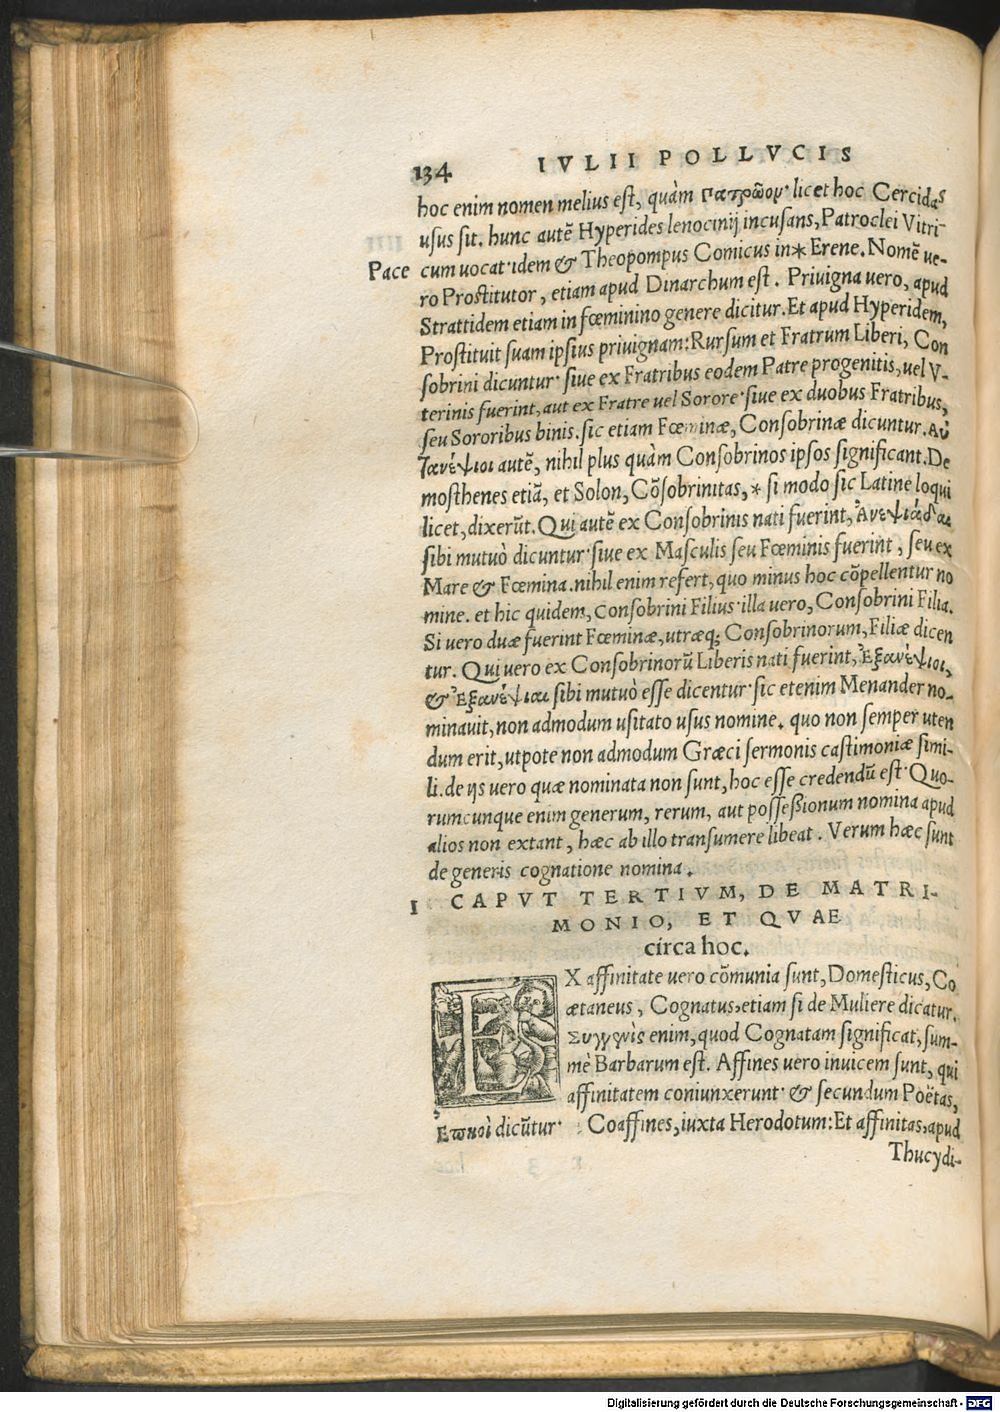 134 IVLII POLLVCIS
hoc enim nomen melius est, quàm πατρῶον· licet hoc Cercidas
usus sit. hunc autē Hyperides lenocinij incusans, Patroclei Vitri-
Pace cum uocat·idem & Theopompus Comicus in* Erene. Nomē ue-
ro Prostitutor, etiam apud Dinarchum est. Priuigna uero, apud
Strattidem etiam in fœminino genere dicitur. Et apud Hyperidem,
Prostituit suam ipsius priuignam: Rursum et Fratrum Liberi, Con
sobrini dicuntur· siue ex Fratribus eodem Patre progenitis, uel V-
terinis fuerint, aut ex Fratre uel Sorore·siue ex duobus Fratribus,
seu Sororibus binis. sic etiam Fœminæ, Consobrinæ dicuntur. Αὐ
τανέψιοι autē, nihil plus quàm Consobrinos ipsos significant. De
mosthenes etiā, et Solon, Cōsobrinitas, * si modo sic Latine loqui
licet, dixerūt. Qui autē ex Consobrinis nati fuerint, Ἀνεψιάδαι
sibi mutuò dicuntur·siue ex Masculis seu Fœminis fuerint, seu ex
Mare & Fœmina. nihil enim refert, quo minus hoc cōpellentur no
mine. et hic quidem, Consobrini Filius·illa uero, Consobrini Filia.
Si uero duæ fuerint Fœminæ, utræq; Consobrinorum, Filiæ dicen
tur. Qui uero ex Consobrinorū Liberis nati fuerint, Ἐξανέψιοι,
& Ἐξανέψιαι sibi mutuò esse dicentur·sic etenim Menander no-
minauit, non admodum usitato usus nomine. quo non semper uten
dum erit, utpote non admodum Græci sermonis castimoniæ simi-
li. de ijs uero quæ nominata non sunt, hoc esse credendū est· Quo-
rumcunque enim generum, rerum, aut possessionum nomina apud
alios non extant, hæc ab illo transumere libeat. Verum hæc sunt
de generis cognatione nomina.
I CAPVT TERTIVM, DE MATRI-
MONIO, ET QVAE
circa hoc.
EX affinitate uero cōmunia sunt, Domesticus, Co
ætaneus, Cognatus, etiam si de Muliere dicatur.
Συγγνὶς enim, quod Cognatam significat, sum-
mè Barbarum est. Affines uero inuicem sunt, qui
affinitatem coniunxerunt· & secundum Poëtas,
Ἐωκοὶ dicūtur· Coaffines, iuxta Herodotum: Et affinitas, apud
Thucydi-
Digitalisierung gefördert durch die Deutsche Forschungsgemeinschaft - DFG